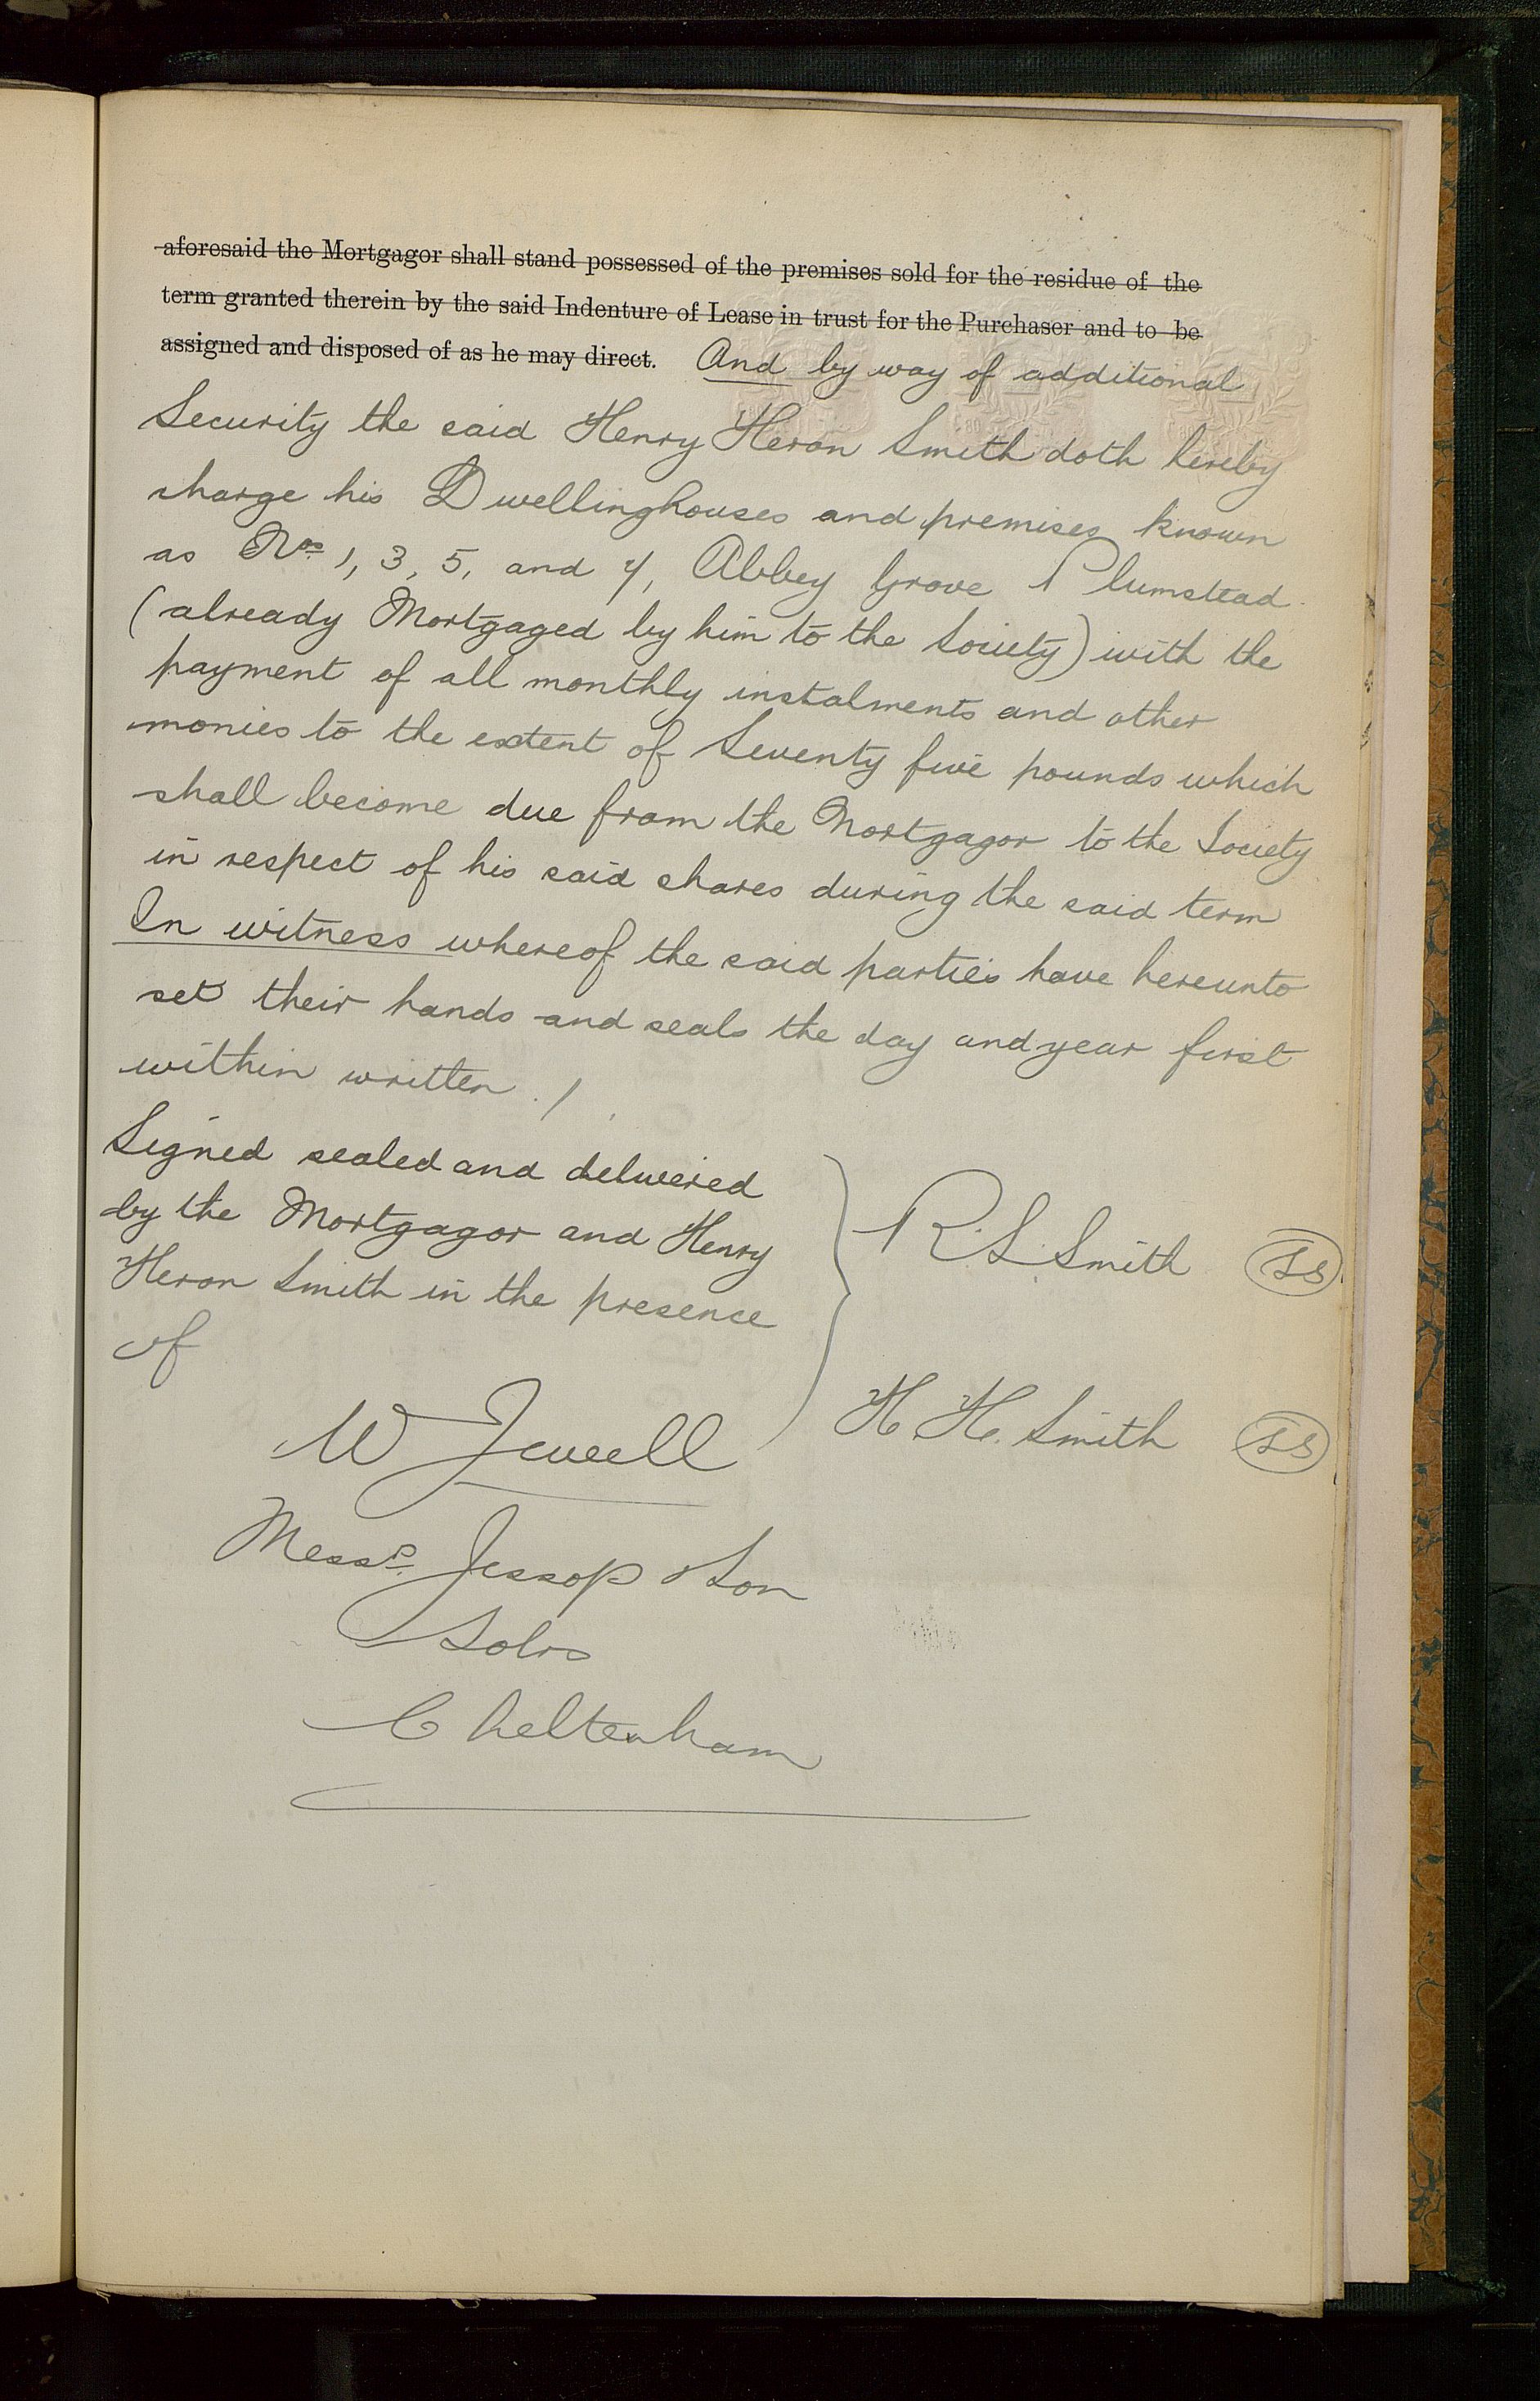 aforesaid the Mortgagor shall stand possessed of the premises sold for the residue of the
term granted therein by the said Indenture of Lease in trust for the Purchaser and to be
assigned and disposed of as he may direct. And by way of additional
Security the said Henry Heron Smith doth hereby
charge his Dwellinghouses and premises known
as Nos 1, 3, 5, and 7, Abbey Grove Plumstead
(already Mortgaged by him to the Society) with the
payment of all monthly instalments and other
monies to the extent of Seventy five pounds which
shall become due from the Mortgagor to the Society
in respect of his said shares during the said term
In witness whereof the said parties have hereunto
set their hands and seals the day and year first
within written. /
Signed sealed and delivered
by the Mortgagor and Henry
Heron Smith in the presence
of
R. S. Smith LS
H. H. Smith LS
W Jewell
Messrs. Jessop & Son
Solrs
Cheltenham